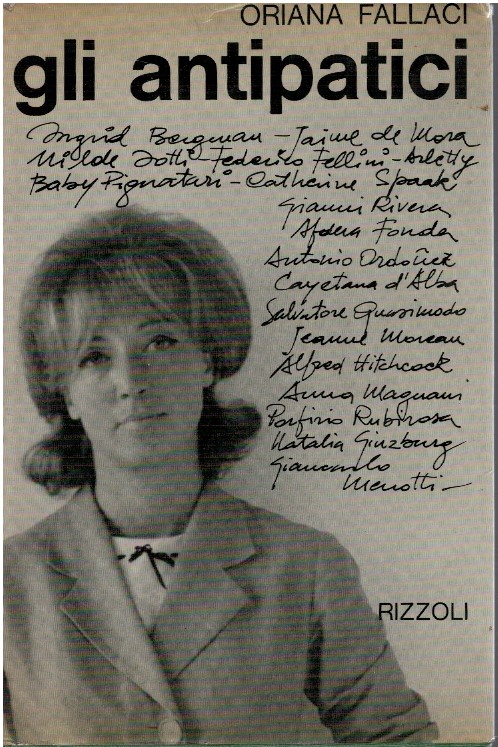 ORIANA FALLACI
gli antipatici
Ingrid Bergman - Jaime de Mora
Nilde Jotti - Federico Fellini - Arletty
Baby Pignatari - Catherine Spaak
Gianni Rivera
Afdera Fonda
Antonio Ordóñez
Cayetana d'Alba
Salvatore Quasimodo
Jeanne Moreau
Alfred Hitchcock
Anna Magnani
Porfirio Rubirosa
Natalia Ginzburg
Giancarlo
Menotti -
RIZZOLI